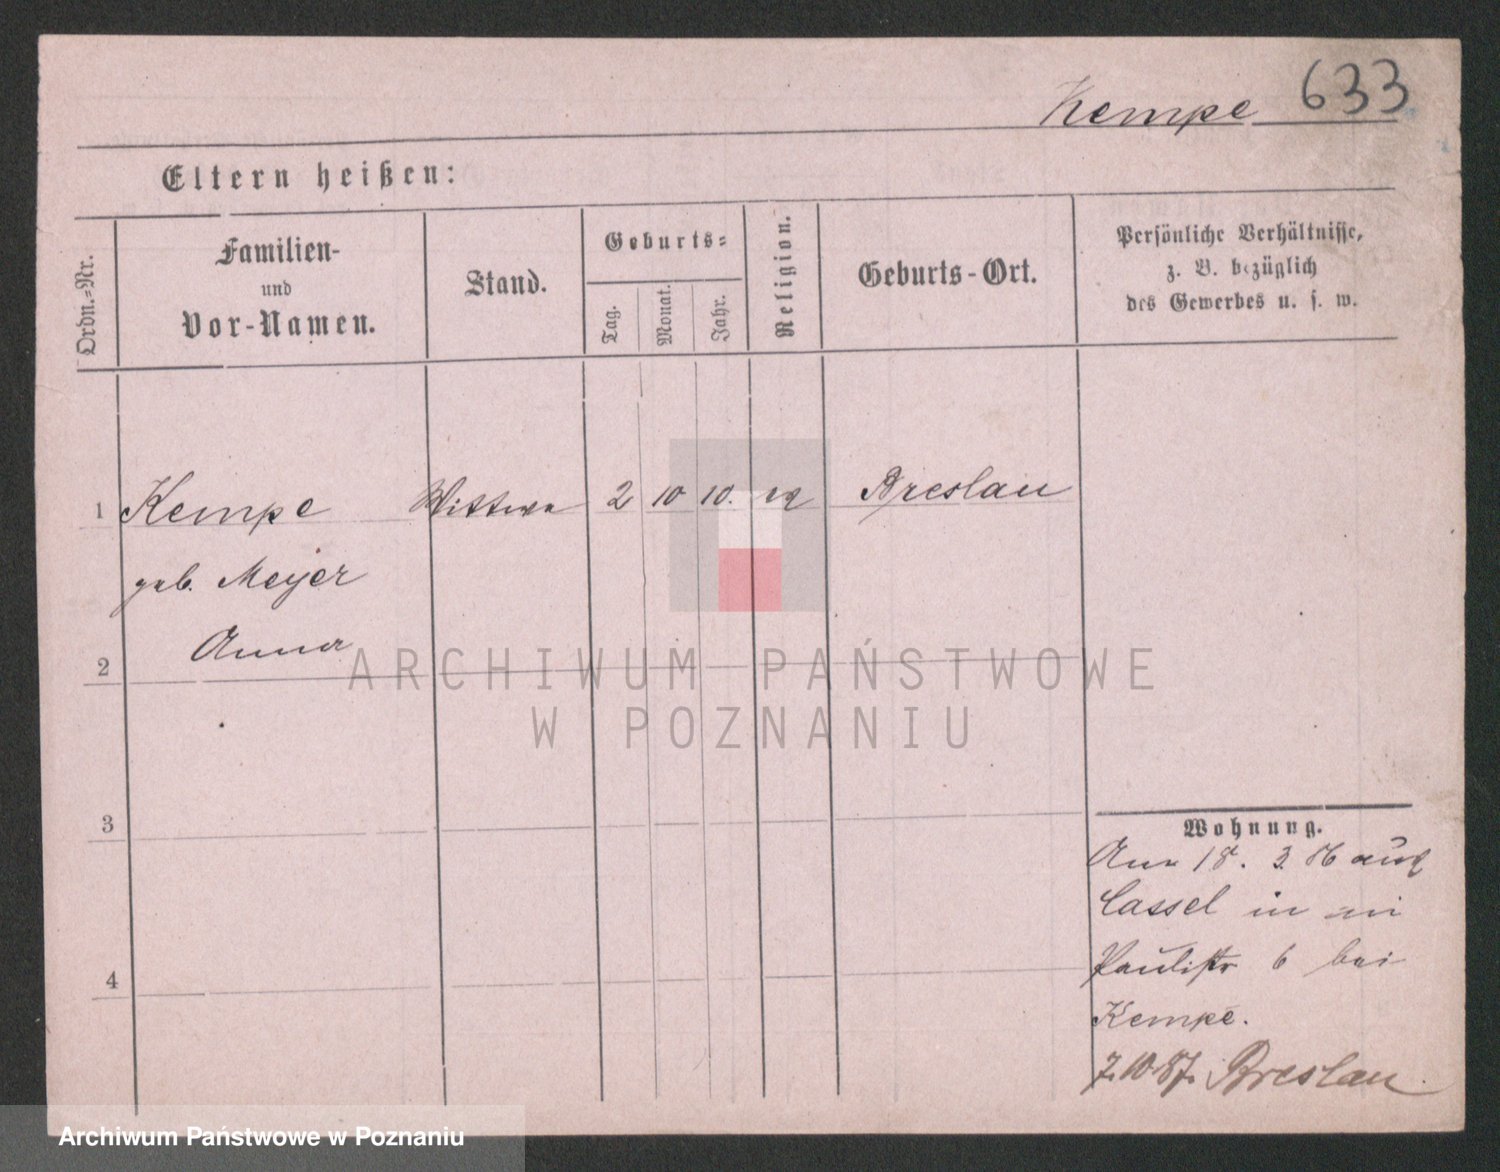 Kempe 633
Eltern heißen:
Ordn.-Nr.
Familien-
und
Vor-Namen.
Stand.
Geburts-
Tag.
Monat.
Jahr.
Religion.
Geburts-Ort.
Persönliche Verhältnisse,
z. B. bezüglich
des Gewerbes u. s. w.
1 Kempe Wittwe 2 10 10. Breslau
geb. Meyer
2 Anna
ARCHIWUM PAŃSTWOWE
W POZNANIU
3
Wohnung.
18. 3. 86 aus
Cassel in
4
Paulistr 6 bei
Kempe.
7.10.87. Breslau
Archiwum Państwowe w Poznaniu